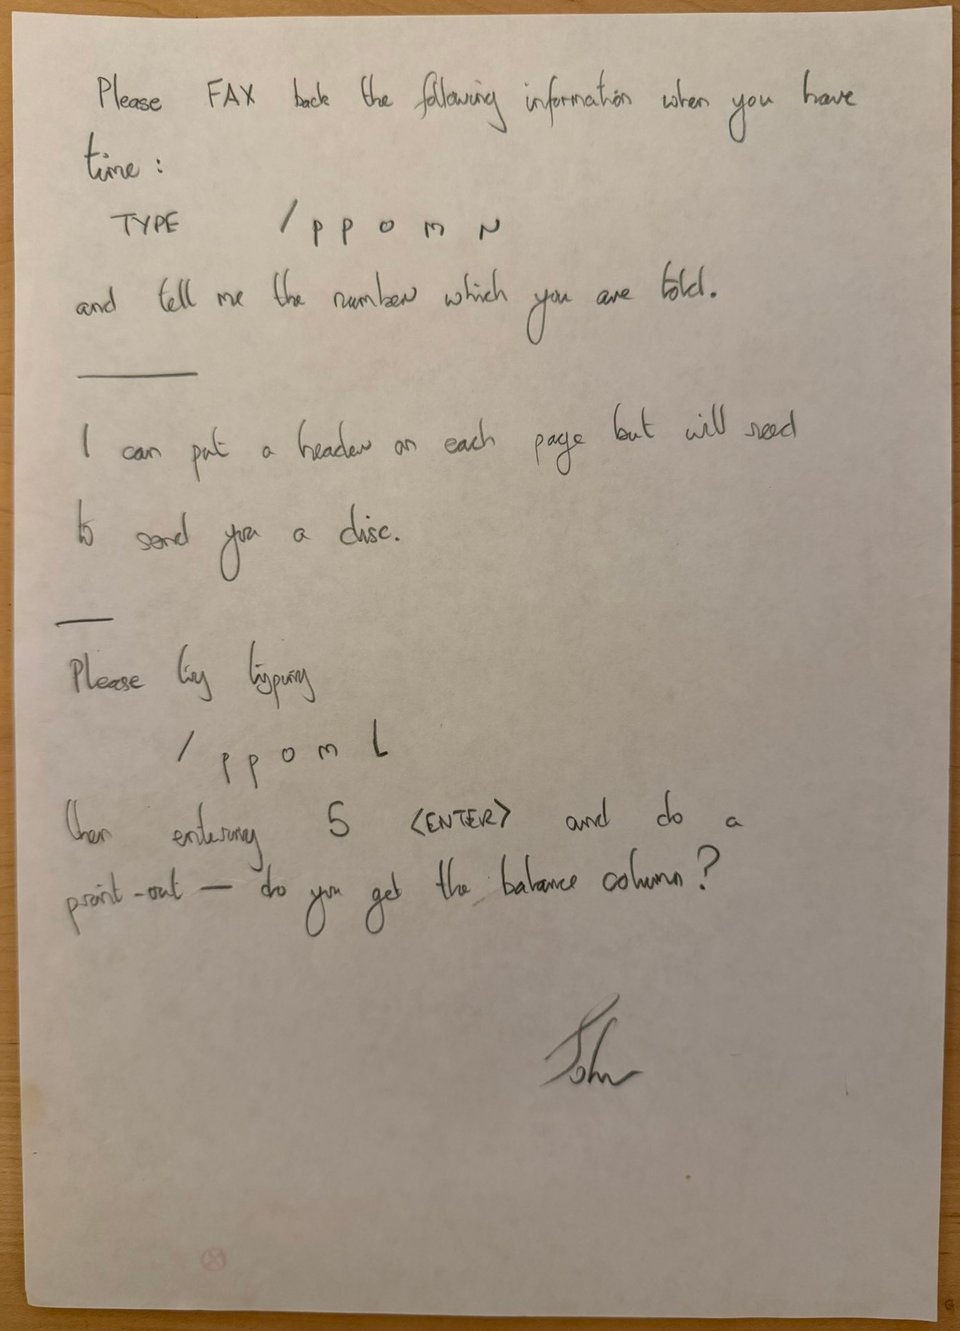 Please FAX back the following information when you have
time :
TYPE / p p o m N
and tell me the number which you are told.
I can put a header on each page but will need
to send you a disc.
Please try typing
/ p p o m L
then entering 5 <ENTER> and do a
print-out — do you get the balance column?
John